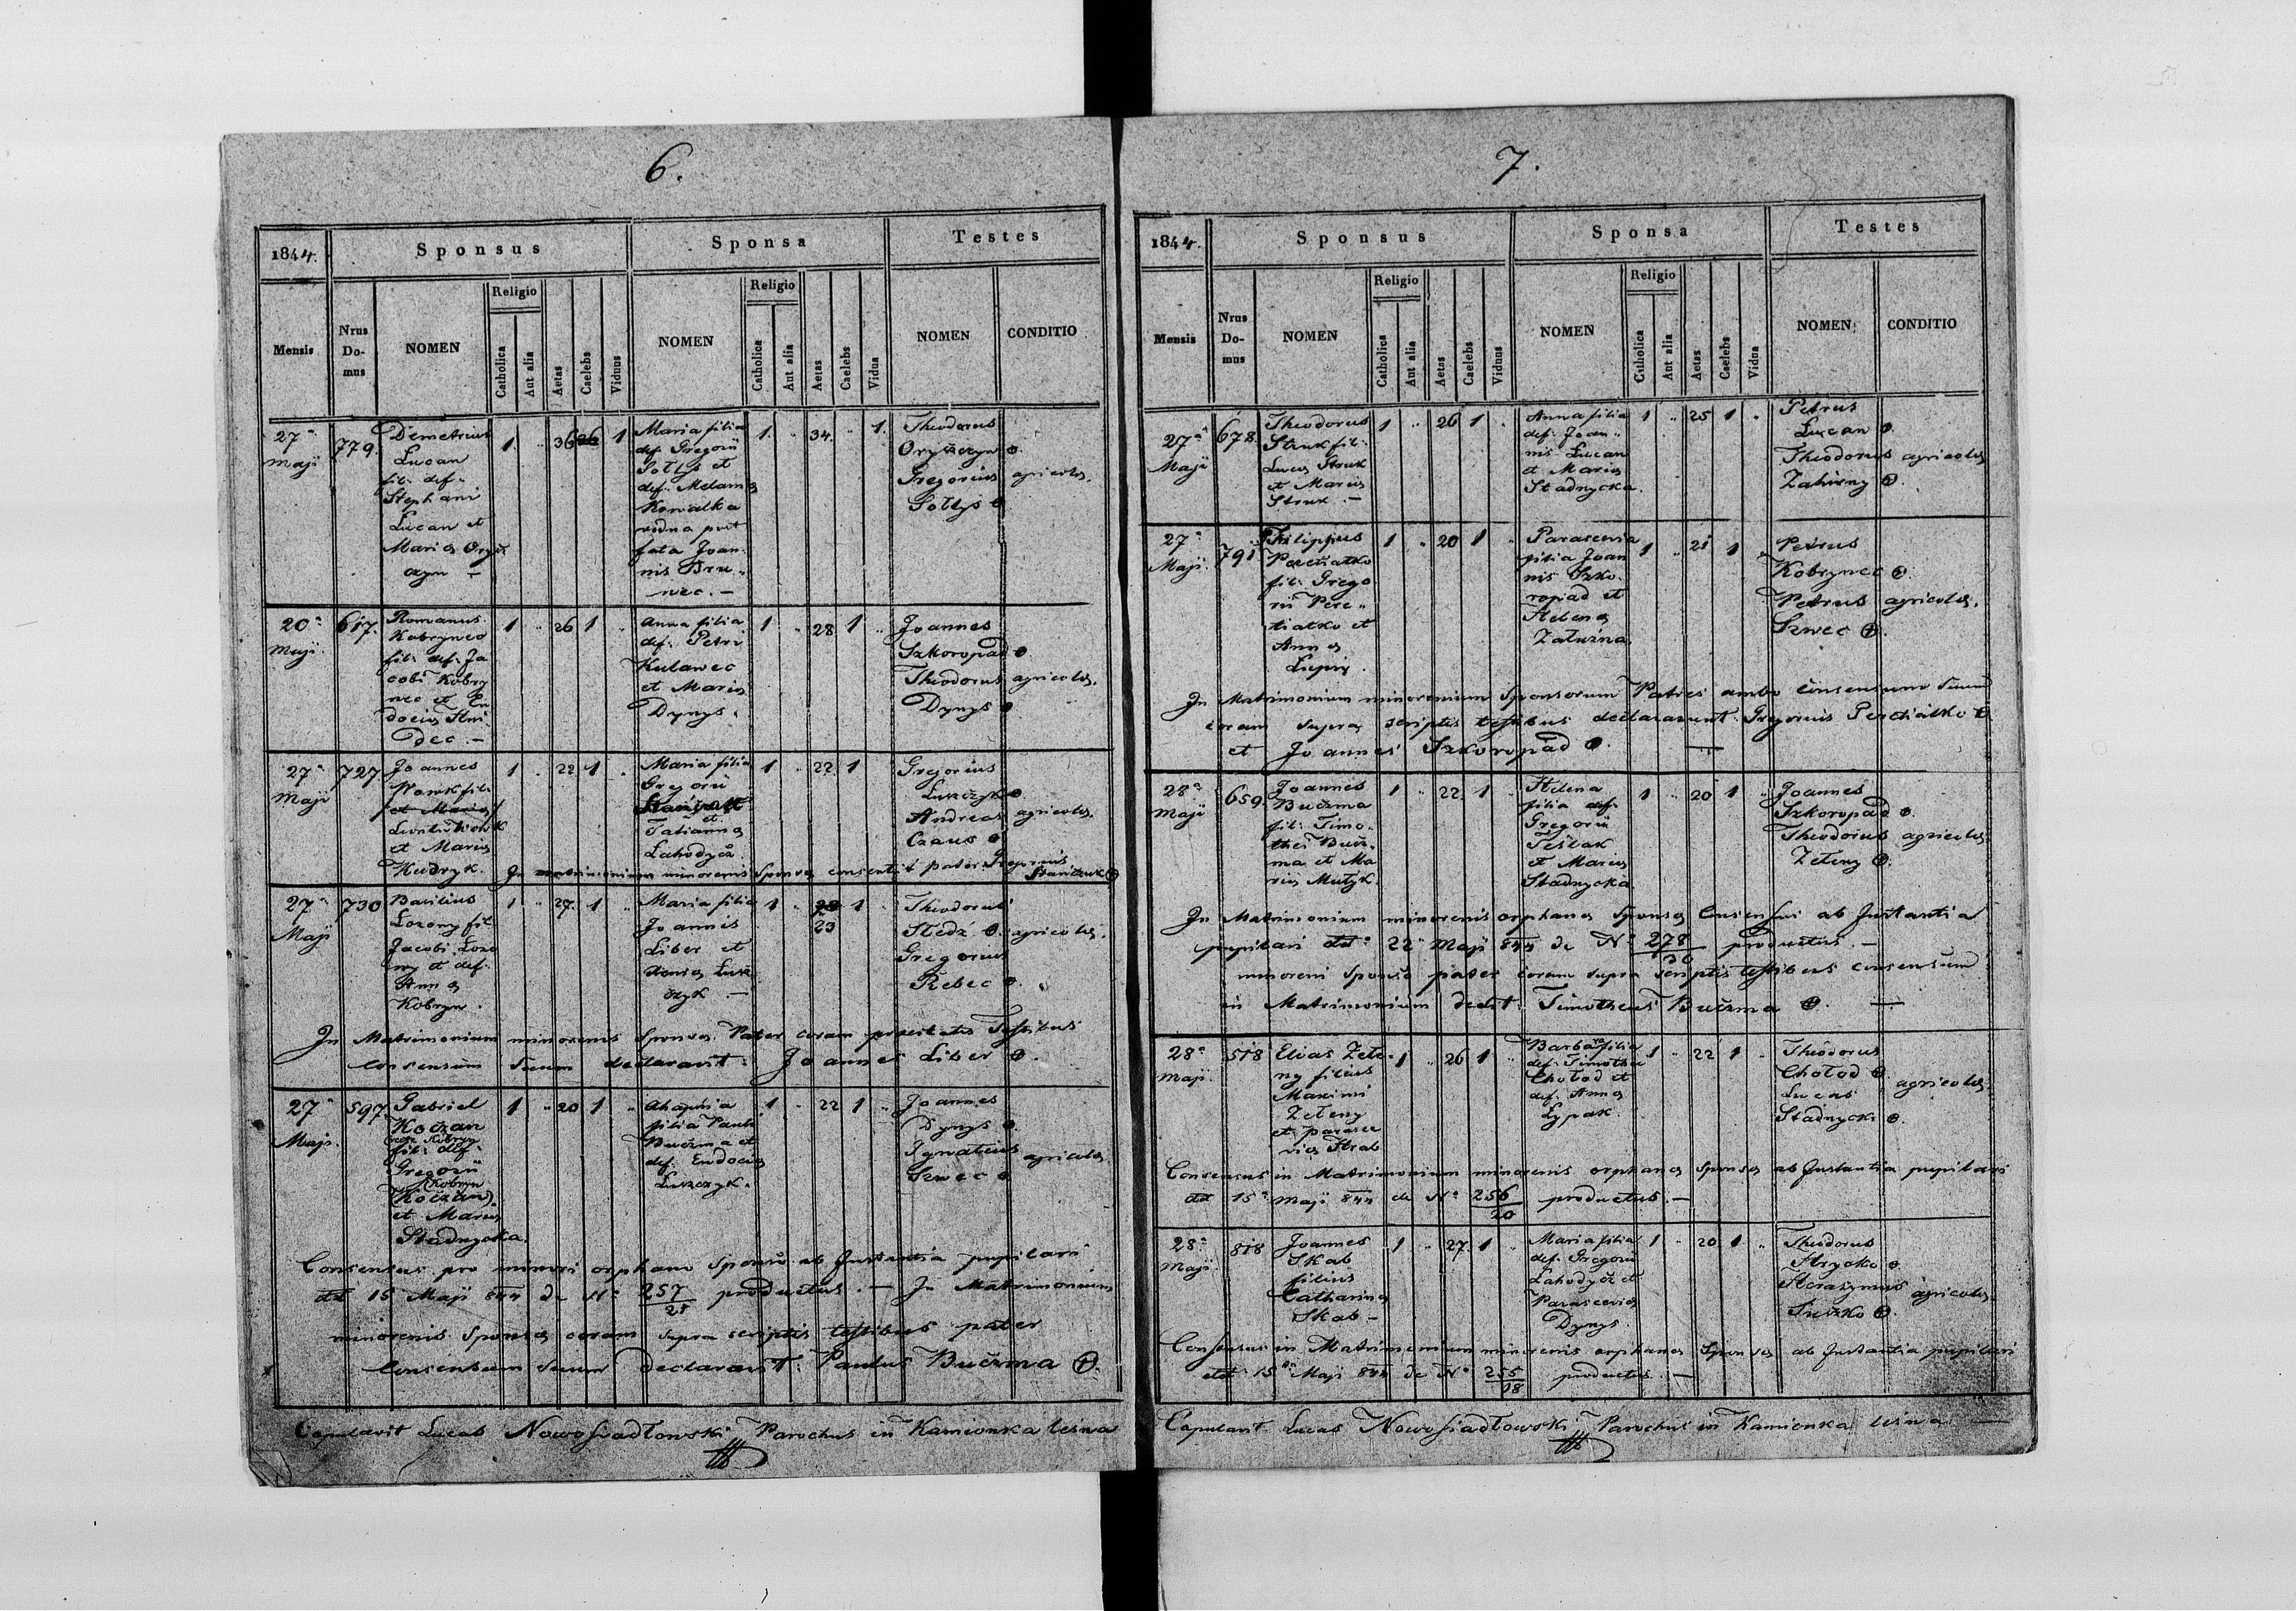 6.
1844.
Sponsus
Sponsa
Testes
Mensis
Nrus Do-mus
NOMEN
Religio
Catholica
Aut alia
Aetas
Caelebs
Viduus
NOMEN
Religio
Catholica
Aut alia
Aetas
Caelebs
Vidua
NOMEN
CONDITIO
27ª Maji
779.
Demetrius
Lucan
fil: def:
Stephani
Lucan et
Maria
czyn —
1 " 36 26 1
Maria filia
def: Gregorii
Sołtys et
def: Melania
Kowalka
vidua post
fata Joan-
nis
wec. —
1. " 34. " 1.
Theodorus
Oryszczyn
Gregorius
Sołtys
agricolae.
20ª Maji
617.
Romanus
Kobrynec
fil: def: Ja
cobi Kobry
nec et Eu
docia
dec. —
1 " 26 1 "
Anna filia
def: Petri
Kulawec
et Maria
Dynys.
1 " 28 1 "
Joannes
Szkoropad
Theodorus
Dynys
agricolae.
27ª Maji
727.
Joannes
Wowk fil:
et Maria
Wowk
et Maria
Hudryk.
1 " 22 1 "
Maria filia
Gregorii
et
Tatianna
Lahodycz
1 " 22 1
Gregorius
Łuszczyk
Andreas
Czaus
agricolae.
In matrimonium minorenis Sponsa consentit pater Gregorius
27ª Maji
730
Basilius
Lozony fil
Jacobi Lozo
ny et def:
Anna
Kobryn.
1 " 27. 1 "
Maria filia
Joannis
Liber et
Xenia Łusz
czyk —
1 " 23 1 "
Theodorus
Stedz
Gregorius
Rebec
agricolae.
In Matrimonium minorenis Sponsa Pater coram praecitatis Testibus
Consensum Suum declaravit: Joannes Liber
27ª Maji.
597
Gabriel
Koczan
Kobryn
fil: def:
Gregorii
Kobryn
(Koczan)
et Maria
Stadnycka.
1 " 20 1 "
Ahaphia
filia Pauli
Buczma et
def: Eudocia
Łuszczyk.
1 " 22 1 "
Joannes
Dynys
Ignatius
Szwec
agricolae
Consensus pro minori orphano Sponso ab Instantia pupilari
dtt 15 Maji 844 de Nº 257/21 productus. — In Matrimonium
minorenis Sponsa coram supra scriptis testibus pater
Consensum Suum declaravit: Paulus Buczma
Copulavit Lucas Nowosiadłowski Parochus in Kamionka lesna
7.
1844.
Sponsus
Sponsa
Testes
Mensis
Nrus Do-mus
NOMEN
Religio
Catholica
Aut alia
Aetas
Caelebs
Viduus
NOMEN
Religio
Catholica
Aut alia
Aetas
Caelebs
Vidua
NOMEN
CONDITIO
27ª Maji
678.
Theodorus
Struk fil:
Luca Struk
et Maria
Struk. —
1 " 26 1 "
Anna filia
def: Joan-
nis Lucan
et Maria
Stadnycka.
1 " 25 1 "
Petrus
Lucan
Theodorus
Zahirny
agricolae
27ª Maji.
791
Filippus
Peretiatko
fil: Grego
rii Pere-
tiatko et
Anna
Lupiy.
1 " 20 1 "
Parascevia
filia Joan
nis Szko-
ropad et
Helena
Załuzna.
1 " 21 1
Petrus
Kobrynec
Petrus
Szwec
agricolae.
In Matrimonium minorenium Sponsorum Patres ambo consensum Suum
coram supra scriptis testibus declararunt. Gregorius Peretiatko
et Joannes Szkoropad. —
28ª Maji
659.
Joannes
Buczma
fil: Timo-
thei Bucz-
ma et Ma
ria Mutyk.
1 " 22. 1 "
Helena
filia def:
Gregorii
Teslak
et Maria
Stadnycka.
1 " 20 1 "
Joannes
Szkoropad
Theodorus
Zełeny
agricolae
In Matrimonium minorenis orphana Sponsa Consensus ab Instantia
pupilari dtt 22ª Maji 844 de Nº 278/30 productus. —
minoreni Sponso pater coram supra scriptis testibus consensum
in Matrimonium dedit. Timotheus Buczma. —
28ª Maji.
518
Elias Zełe-
ny filius
Maximi
Zełeny
et parasce
via Hrab
1 " 26 1 "
Barbara filia
def: Timothei
Chołod et
def: Anna
Lypak.
1 " 22 1 "
Theodorus
Chołod
Lucas
Stadnycki
agricolae.
Consensus in Matrimonium minorenis orphana Sponsa ab Instantia pupilari
dtt 15ª Maji 844 de Nº 256/20 productus. —
28ª Maji.
818
Joannes
Skab
filius
Catharina
Skab —
1 " 27. 1 "
Maria filia
def: Gregorii
Lahodycz et
Parascevia
Dynys.
1 " 20 1 "
Theodorus
Hrycko
Herasymus
Suszko
agricolae.
Consensus in Matrimonium minorenis orphana Sponsa ab Instantia pupilari
dtt 15ª Maji 844 de Nº 255/18 productus. —
Copulavit Lucas Nowosiadłowski Parochus in Kamionka lesna —